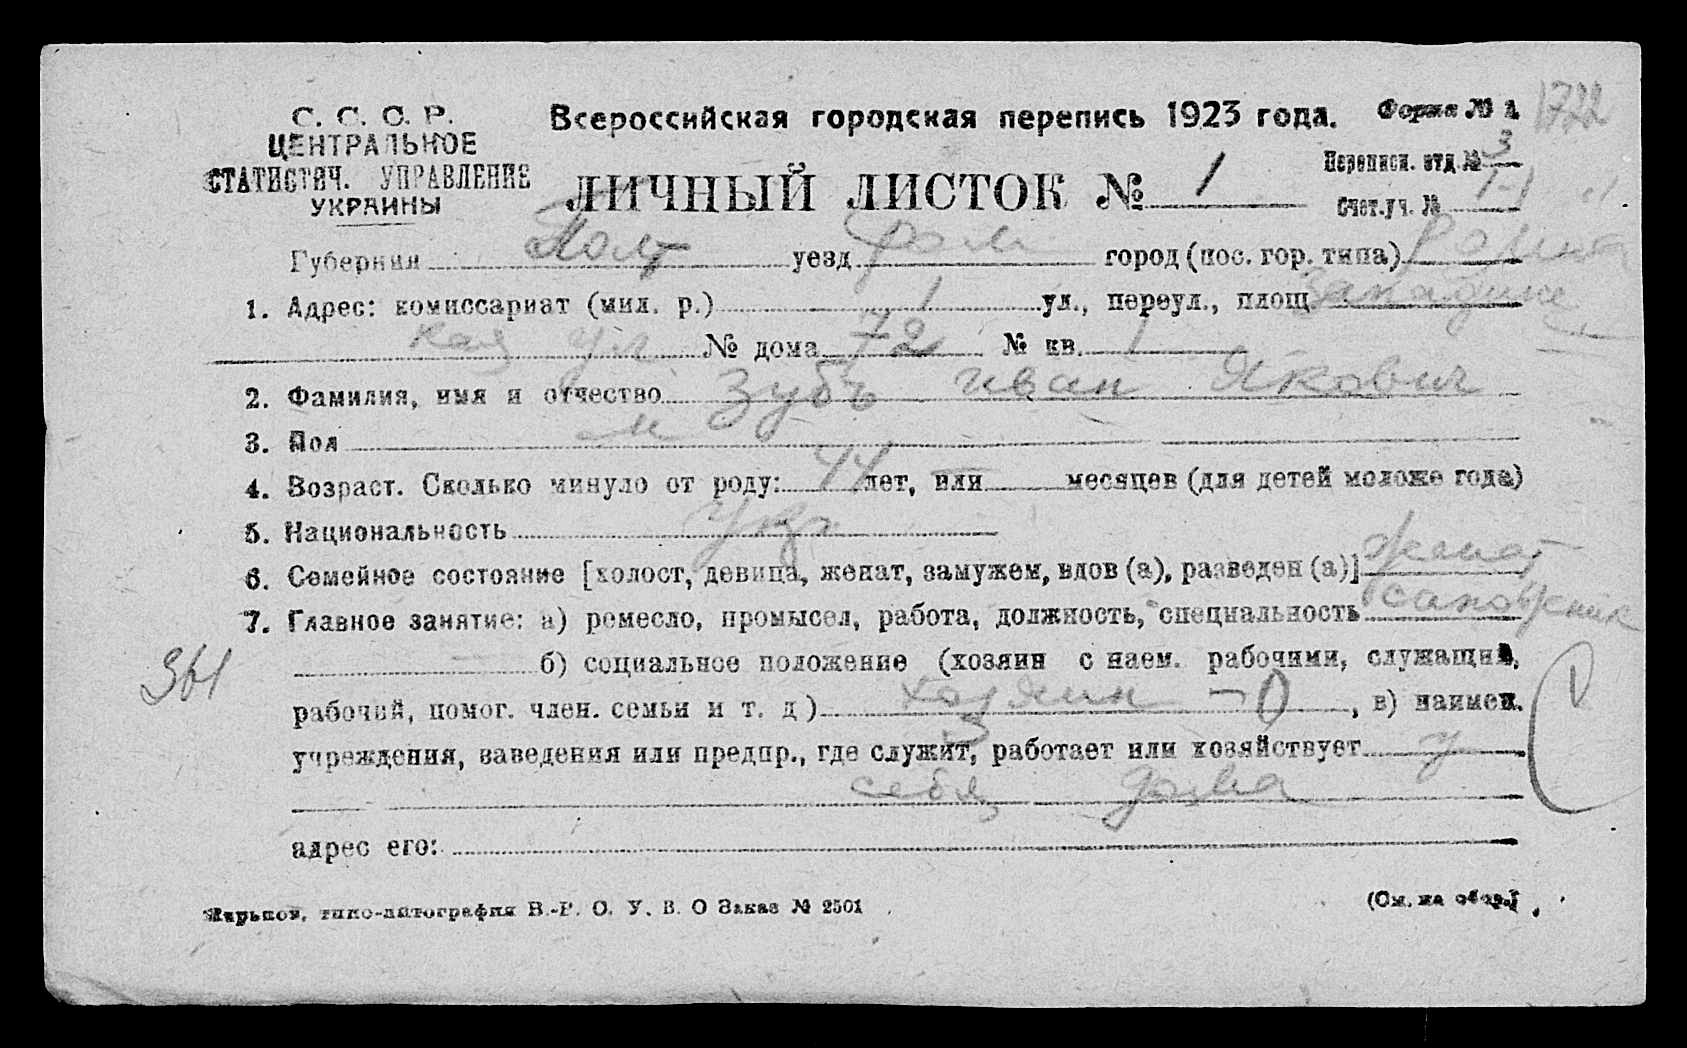 С. С. С. Р.
ЦЕНТРАЛЬНОЕ
СТАТИСТИЧ. УПРАВЛЕНИЕ
УКРАИНЫ
Всероссийская городская перепись 1923 года. Форма № 1. 1722
ЛИЧНЫЙ ЛИСТОК № 1
Переписн. отд № 3
Счет.уч. № 1-1
Губерния Полт уезд Ром город (пос. гор. типа) Ромны
1. Адрес: комиссариат (мил. р.) 1 ул., переул., площ.
кая ул № дома 72 № кв. 1
2. Фамилия, имя и отчество Зубъ Иван Якович
3. Пол м
4. Возраст. Сколько минуло от роду: 44 лет, или — месяцев (для детей моложе года)
5. Национальность укр
6. Семейное состояние [холост, девица, женат, замужем, вдов (а), разведен (а)] женат
7. Главное занятие: а) ремесло, промысел, работа, должность, специальность сапожник
361
б) социальное положение (хозяин с наем. рабочими, служащий,
рабочий, помог. член. семьи и т. д ) хозяин - О , в) наимен.
3
учреждения, заведения или предпр., где служит, работает или хозяйствует у
себя дома
адрес его:
Харьков, типо-литография В.-Р. О. У. В. О Заказ № 2501
(См. на обор.)